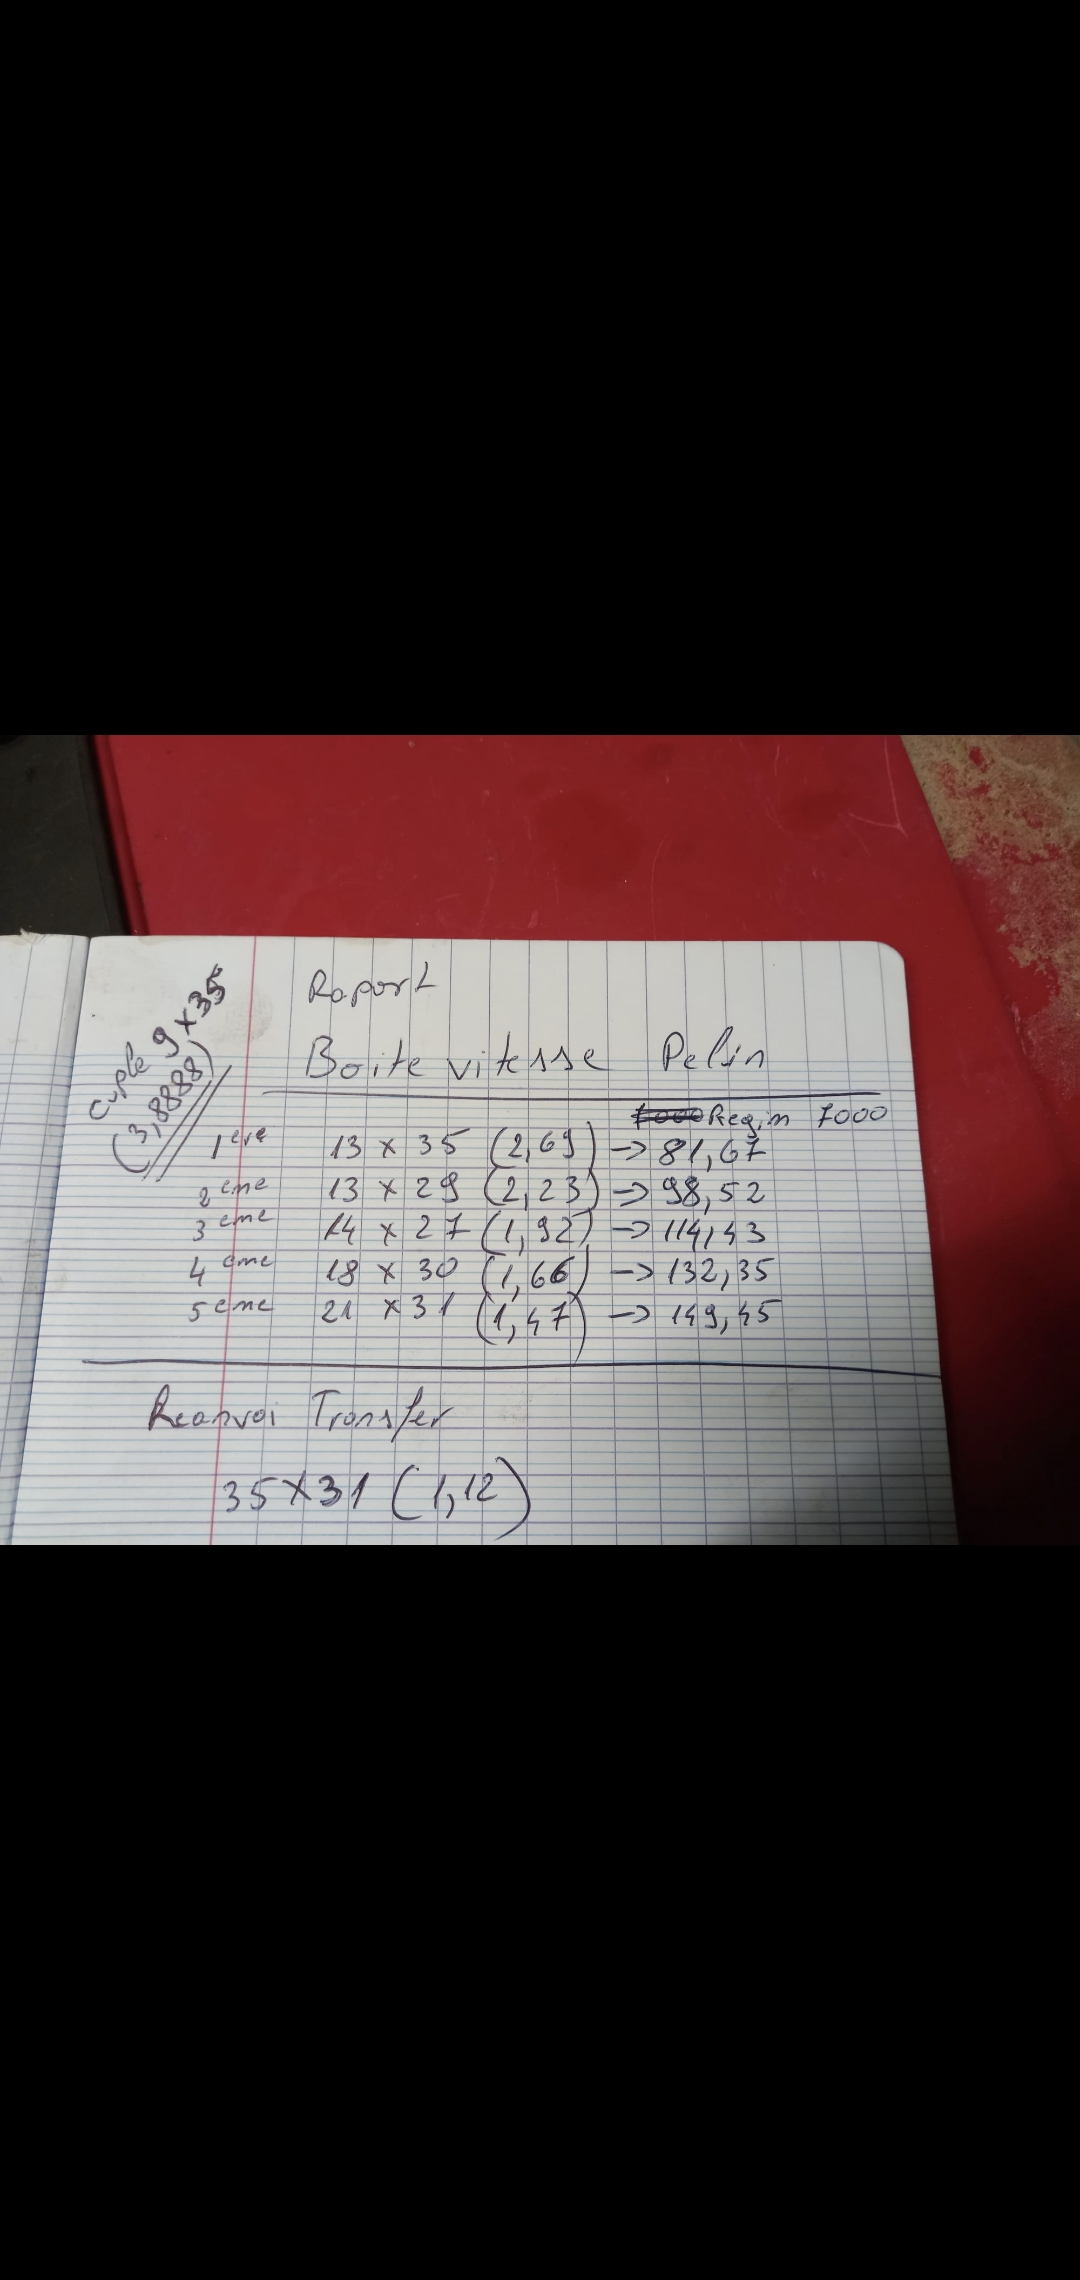 cuple 9 x 35
(3,8888)
Raport
Boite vitesse Pelin
Regim 7000
1ere 13 x 35 (2,69) -> 81,67
2eme 13 x 29 (2,23) -> 98,52
3eme 14 x 27 (1,92) -> 114,43
4eme 18 x 30 (1,66) -> 132,35
5eme 21 x 31 (1,47) -> 149,45
Reanvoi Transfer
35 x 31 (1,12)